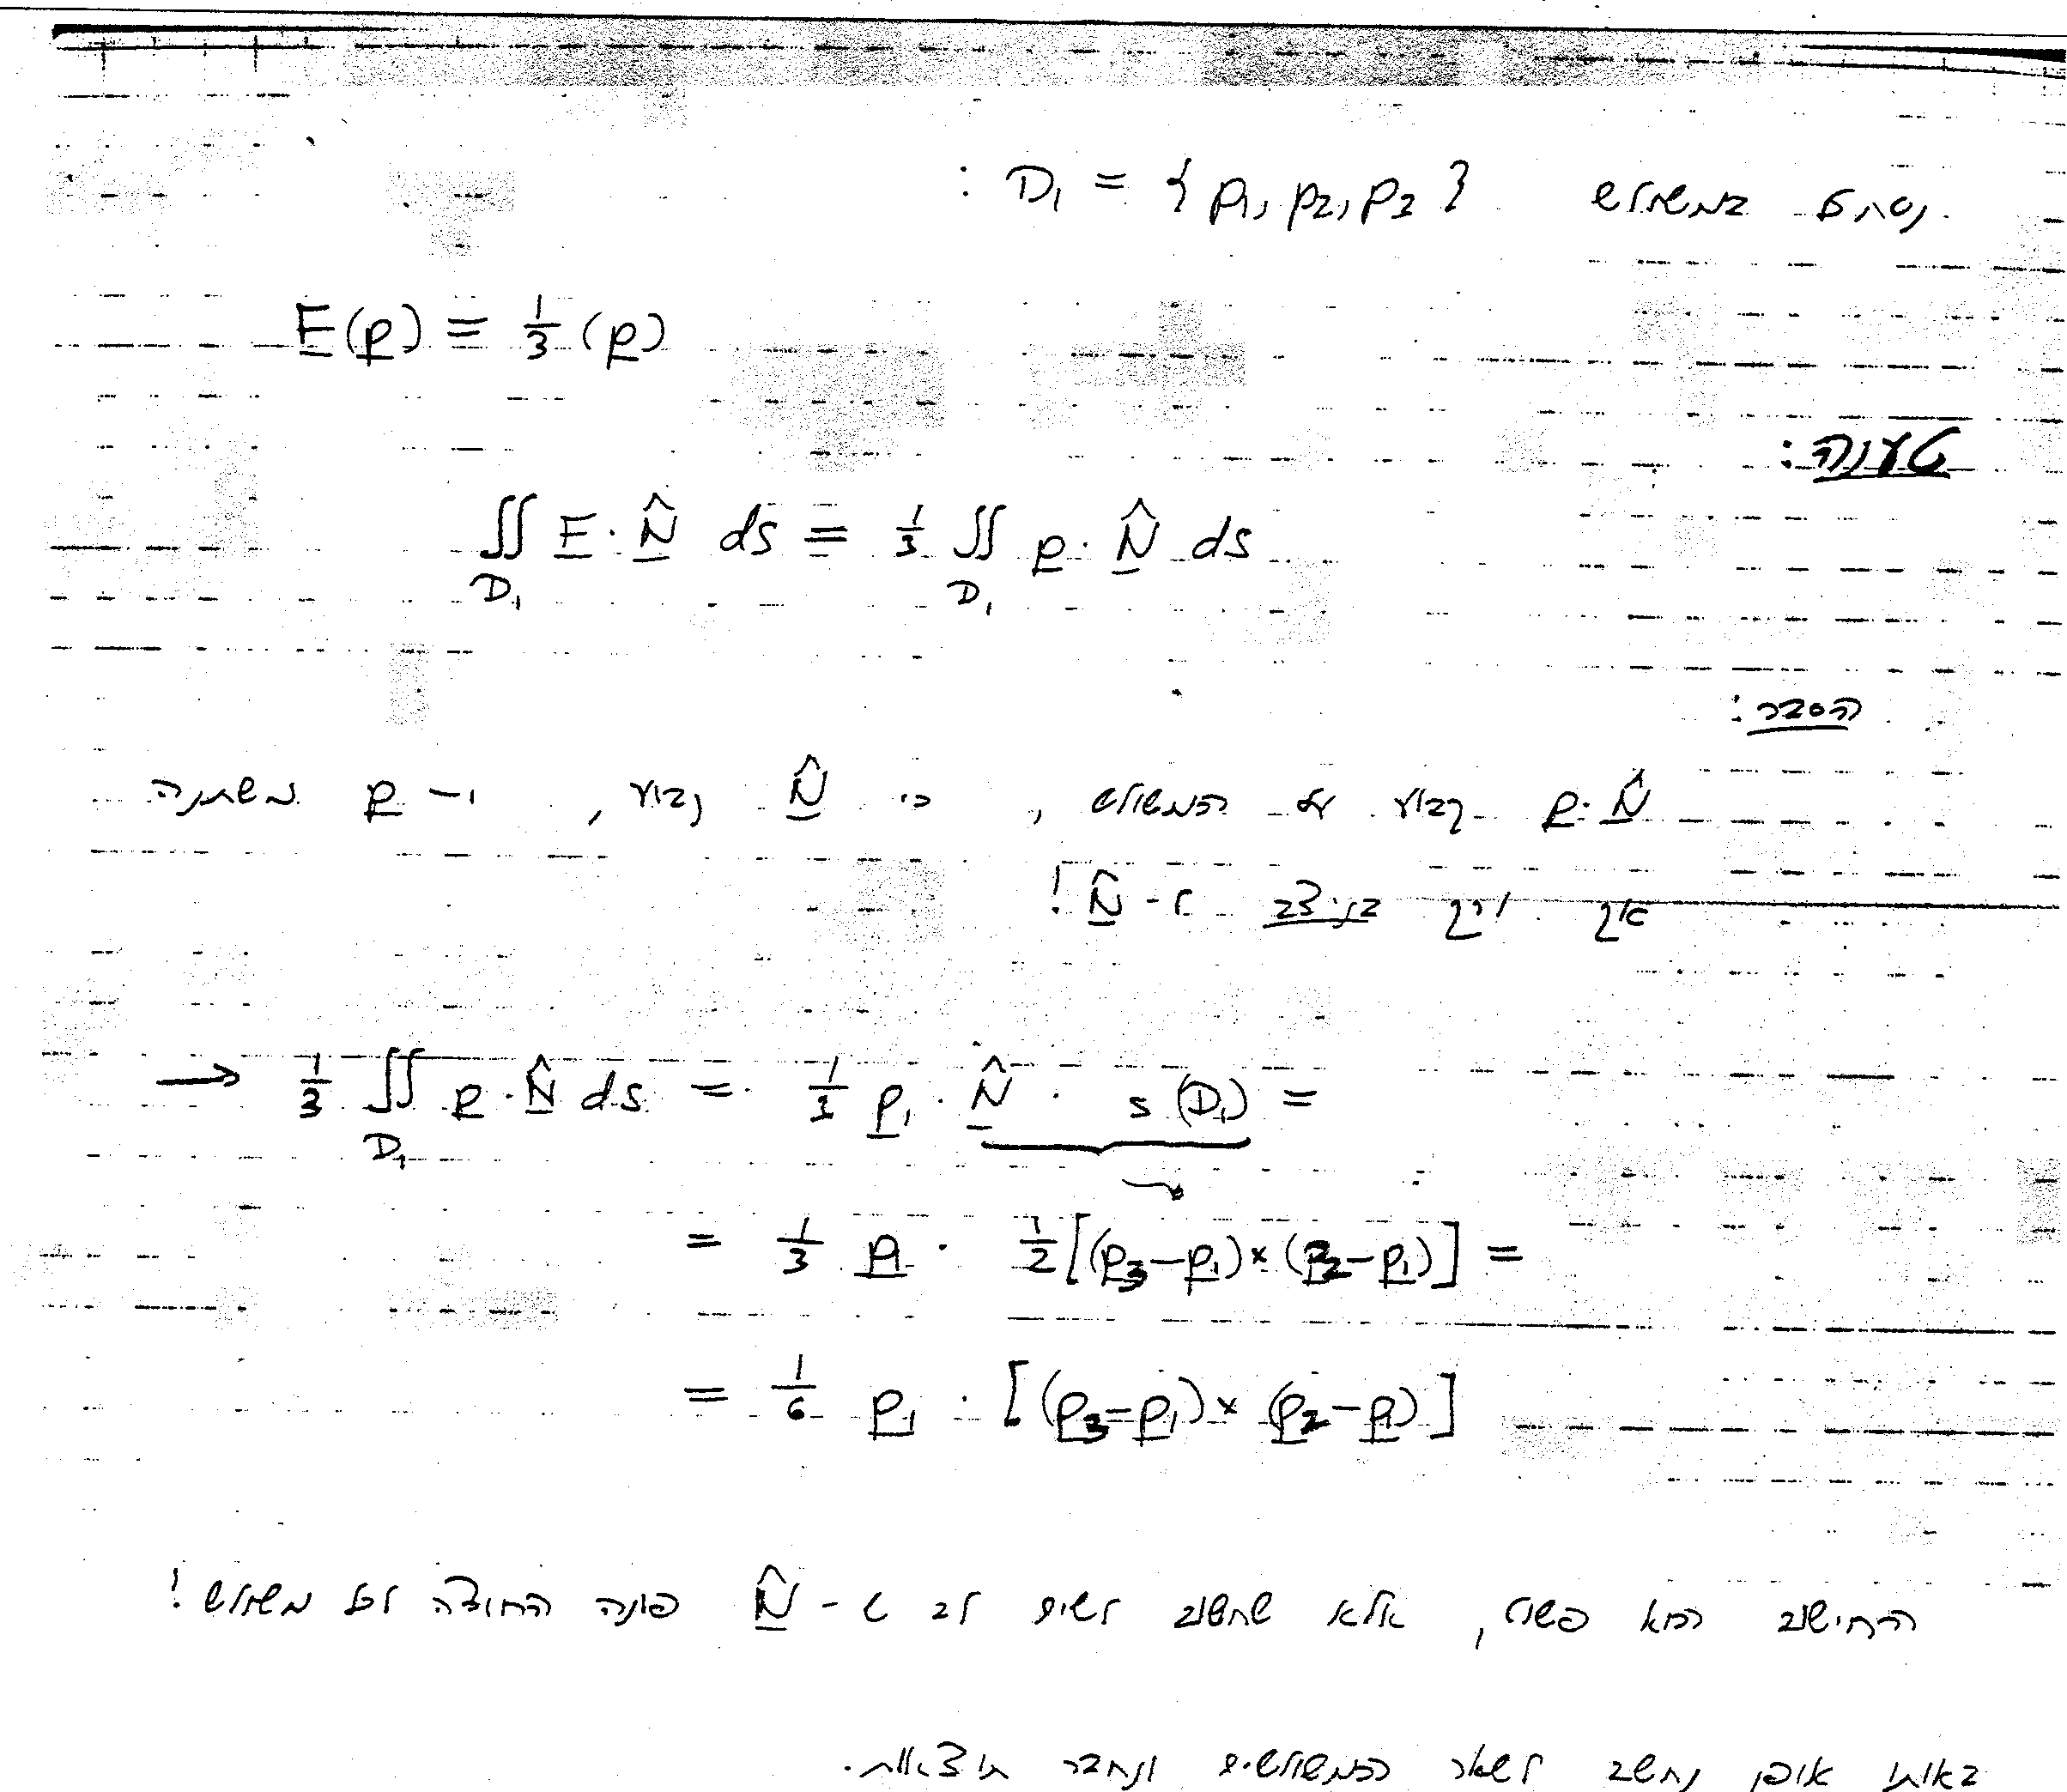 נסתכל במשולש D₁ = { p₁, p₂, p₃ } :
F(p) = 1/3 (p)
טענה:
∬_{D₁} F · N̂ ds = 1/3 ∬_{D₁} p · N̂ ds
הסבר:
p · N̂ קבוע על המשולש, כי N̂ קבוע, ו-p משתנה
אך ורק בניצב ל-N̂!
→ 1/3 ∬_{D₁} p · N̂ ds = 1/3 p₁ · N̂ · s(D₁) =
= 1/3 p₁ · 1/2 [(p₃-p₁)×(p₂-p₁)] =
= 1/6 p₁ · [(p₃-p₁)×(p₂-p₁)]
החישוב הבא פשוט, אלא שחשוב לשים לב ש-N̂ פונה החוצה לכל משולש!
באותו אופן נחשב לשאר המשולשים ונחבר תוצאות.